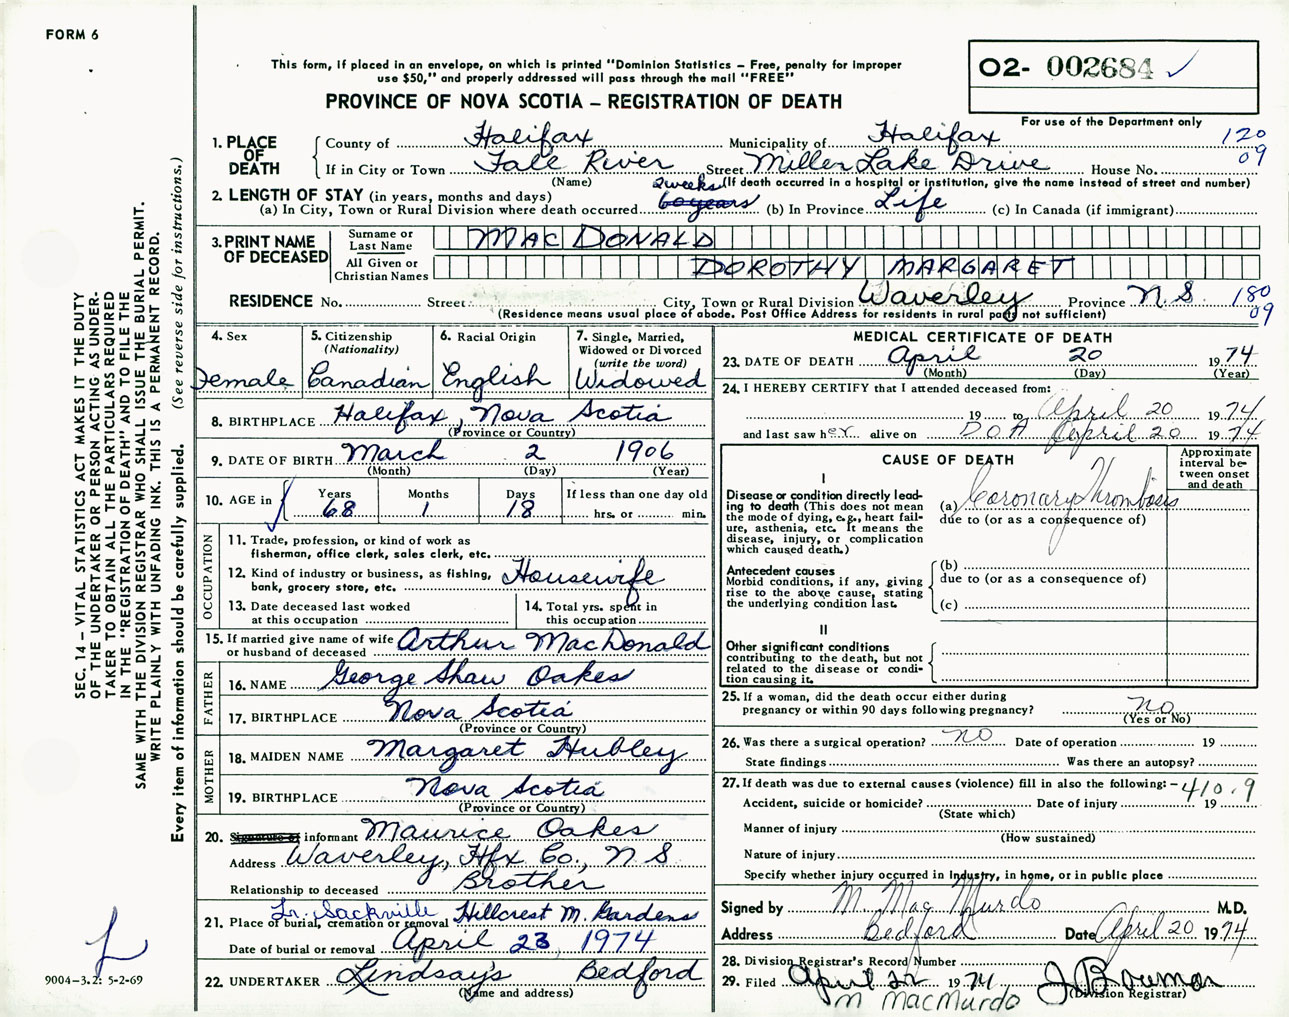 FORM 6
This form, if placed in an envelope, on which is printed "Dominion Statistics – Free, penalty for improper
use $50," and properly addressed will pass through the mail "FREE"
PROVINCE OF NOVA SCOTIA – REGISTRATION OF DEATH
O2- 002684 ✓
For use of the Department only
120
09
1. PLACE OF DEATH
County of Halifax Municipality of Halifax
If in City or Town Fall River Street Miller Lake Drive House No.
(Name) (If death occurred in a hospital or institution, give the name instead of street and number)
2. LENGTH OF STAY (in years, months and days)
2 weeks
(a) In City, Town or Rural Division where death occurred 60 years (b) In Province Life (c) In Canada (if immigrant)
3. PRINT NAME OF DECEASED
Surname or Last Name MAC DONALD
All Given or Christian Names DOROTHY MARGARET
RESIDENCE No. Street City, Town or Rural Division Waverley Province N.S. 180
09
(Residence means usual place of abode. Post Office Address for residents in rural parts not sufficient)
4. Sex
Female
5. Citizenship
(Nationality)
Canadian
6. Racial Origin
English
7. Single, Married,
Widowed or Divorced
(write the word)
Widowed
8. BIRTHPLACE Halifax, Nova Scotia
(Province or Country)
9. DATE OF BIRTH March 2 1906
(Month) (Day) (Year)
10. AGE in
Years Months Days If less than one day old
68 1 18 hrs. or min.
OCCUPATION
11. Trade, profession, or kind of work as
fisherman, office clerk, sales clerk, etc.
12. Kind of industry or business, as fishing, Housewife
bank, grocery store, etc.
13. Date deceased last worked
at this occupation
14. Total yrs. spent in
this occupation
15. If married give name of wife Arthur MacDonald
or husband of deceased
FATHER
16. NAME George Shaw Oakes
17. BIRTHPLACE Nova Scotia
(Province or Country)
MOTHER
18. MAIDEN NAME Margaret Hubley
19. BIRTHPLACE Nova Scotia
(Province or Country)
20. Signature of informant Maurice Oakes
Address Waverley, Hfx Co., N S
Relationship to deceased Brother
Lr. Sackville Hillcrest M. Gardens
21. Place of burial, cremation or removal
Date of burial or removal April 23, 1974
22. UNDERTAKER Lindsay's Bedford
(Name and address)
MEDICAL CERTIFICATE OF DEATH
23. DATE OF DEATH April 20 1974
(Month) (Day) (Year)
24. I HEREBY CERTIFY that I attended deceased from:
19 to April 20 1974
and last saw her alive on DOA April 20 1974
CAUSE OF DEATH
Approximate
interval be-
tween onset
and death
I
Disease or condition directly lead-
ing to death (This does not mean
the mode of dying, e.g., heart fail-
ure, asthenia, etc. It means the
disease, injury, or complication
which caused death.)
(a) Coronary Thrombosis
due to (or as a consequence of)
Antecedent causes
Morbid conditions, if any, giving
rise to the above cause, stating
the underlying condition last.
(b)
due to (or as a consequence of)
(c)
II
Other significant conditions
contributing to the death, but not
related to the disease or condi-
tion causing it.
25. If a woman, did the death occur either during
pregnancy or within 90 days following pregnancy? no
(Yes or No)
26. Was there a surgical operation? no Date of operation 19
State findings Was there an autopsy?
27. If death was due to external causes (violence) fill in also the following: – 410.9
Accident, suicide or homicide? Date of injury 19
(State which)
Manner of injury
(How sustained)
Nature of injury
Specify whether injury occurred in industry, in home, or in public place
Signed by M. MacMurdo M.D.
Address Bedford Date April 20 1974
28. Division Registrar's Record Number
29. Filed April 22 1974 J. Bowman
(Division Registrar)
M MacMurdo
SEC. 14 – VITAL STATISTICS ACT MAKES IT THE DUTY
OF THE UNDERTAKER OR PERSON ACTING AS UNDER-
TAKER TO OBTAIN ALL THE PARTICULARS REQUIRED
IN THE "REGISTRATION OF DEATH" AND TO FILE THE
SAME WITH THE DIVISION REGISTRAR WHO SHALL ISSUE THE BURIAL PERMIT.
WRITE PLAINLY WITH UNFADING INK. THIS IS A PERMANENT RECORD.
Every item of information should be carefully supplied. (See reverse side for instructions.)
9004-3.2: 5-2-69